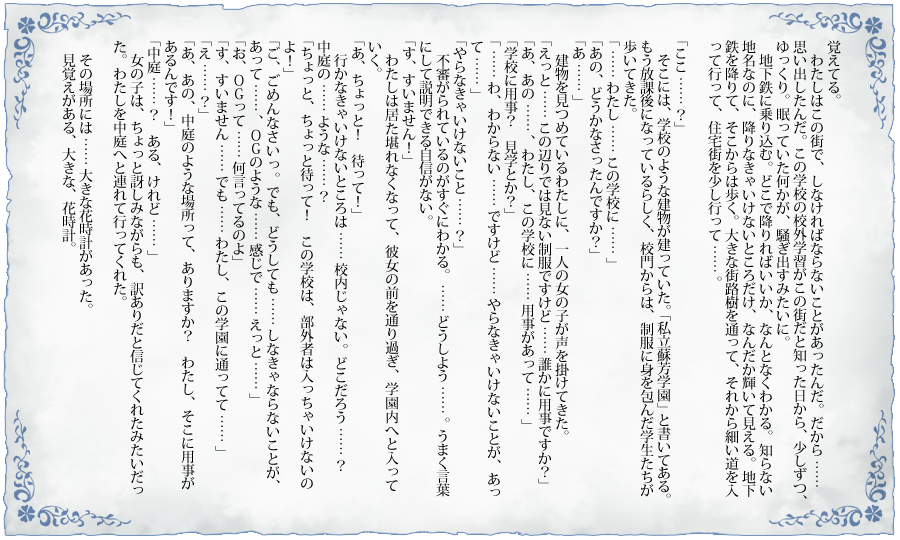 覚えてる。
　わたしはこの街で、しなければならないことがあったんだ。だから……
思い出したんだ。この学校の校外学習がこの街だと知った日から、少しずつ、
ゆっくり。眠っていた何かが、騒ぎ出すみたいに。
　地下鉄に乗り込む。どこで降りればいいか、なんとなくわかる。知らない
地名なのに、降りなきゃいけないところだけ、なんだか輝いて見える。地下
鉄を降りて、そこからは歩く。大きな街路樹を通って、それから細い道を入
って行って、住宅街を少し行って……。
「ここ……？」
　そこには、学校のような建物が建っていた。「私立蘇芳学園」と書いてある。
もう放課後になっているらしく、校門からは、制服に身を包んだ学生たちが
歩いてきた。
「……わたし……この学校に……」
「あの、どうかなさったんですか？」
「あ……」
　建物を見つめているわたしに、一人の女の子が声を掛けてきた。
「えっと……この辺りでは見ない制服ですけど……誰かに用事ですか？」
「あ、あの……わたし、この学校に……用事があって……」
「学校に用事？　見学とか？」
「……わ、わからない……ですけど……やらなきゃいけないことが、あっ
て……」
「やらなきゃいけないこと……？」
　不審がられているのがすぐにわかる。……どうしよう……。うまく言葉
にして説明できる自信がない。
「す、すいません！」
　わたしは居た堪れなくなって、彼女の前を通り過ぎ、学園内へと入って
いく。
「あ、ちょっと！　待って！」
　行かなきゃいけないところは……校内じゃない。どこだろう……？
中庭の……ような……？
「ちょっと、ちょっと待って！　この学校は、部外者は入っちゃいけないの
よ！」
「ご、ごめんなさいっ。でも、どうしても……しなきゃならないことが、
あって……、ＯＧのような……感じで……えっと……」
「お、ＯＧって……何言ってるのよ」
「す、すいません……でも……わたし、この学園に通ってて……」
「え……？」
「あ、あの、中庭のような場所って、ありますか？　わたし、そこに用事が
あるんです！」
「中庭……？　ある、けれど……」
　女の子は、ちょっと訝しみながらも、訳ありだと信じてくれたみたいだっ
た。わたしを中庭へと連れて行ってくれた。
　その場所には……大きな花時計があった。
　見覚えがある、大きな、花時計。